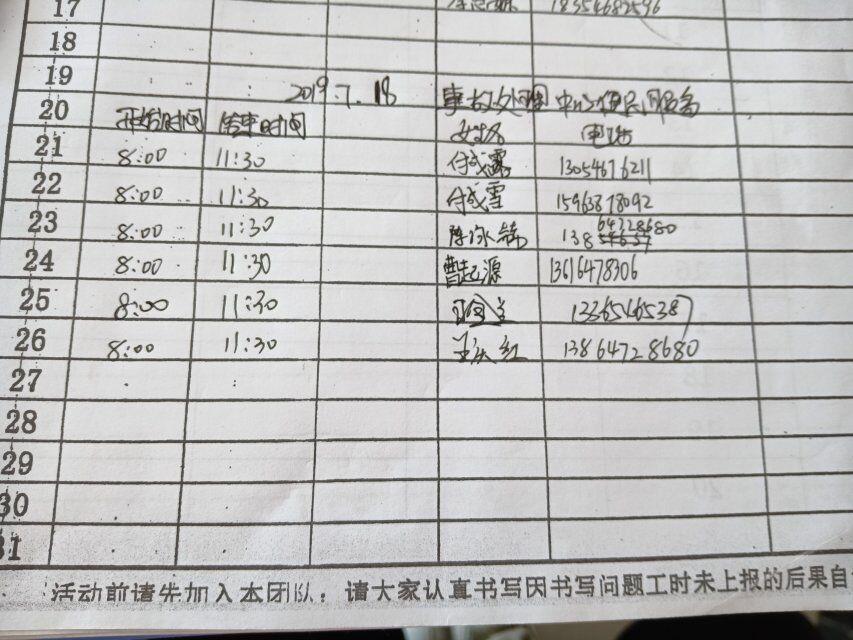 17 18354682596
18
19 2019.7.18 事故处理 中心便民服务
20 开始时间 结束时间 电话
21 8:00 11:30 付成露 13054676211
22 8:00 11:30 付成雪 15963878092
23 8:00 11:30 138 64728680
24 8:00 11:30 曹起源 13616478306
25 8:00 11:30 13365465387
26 8:00 11:30 王庆红 13864728680
27
28
29
30
31
活动前请先加入本团队；请大家认真书写因书写问题工时未上报的后果自